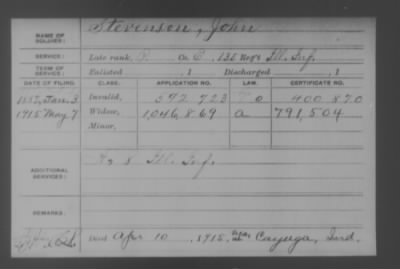 NAME OF SOLDIER: Stevenson, John
SERVICE: Late rank, P. Co. C, 135 Reg't Ill. Inf.
TERM OF SERVICE: Enlisted , 1 Discharged , 1
DATE OF FILING. CLASS. APPLICATION NO. LAW. CERTIFICATE NO.
1887, Jan. 3 Invalid, 592 723 400 870
1915 May 7 Widow, 1,046,869 a 791,504
Minor,
ADDITIONAL SERVICES: K, 8 Ill. Inf.
REMARKS:
Died Apr 10, 1915, at Cayuga, Ind.